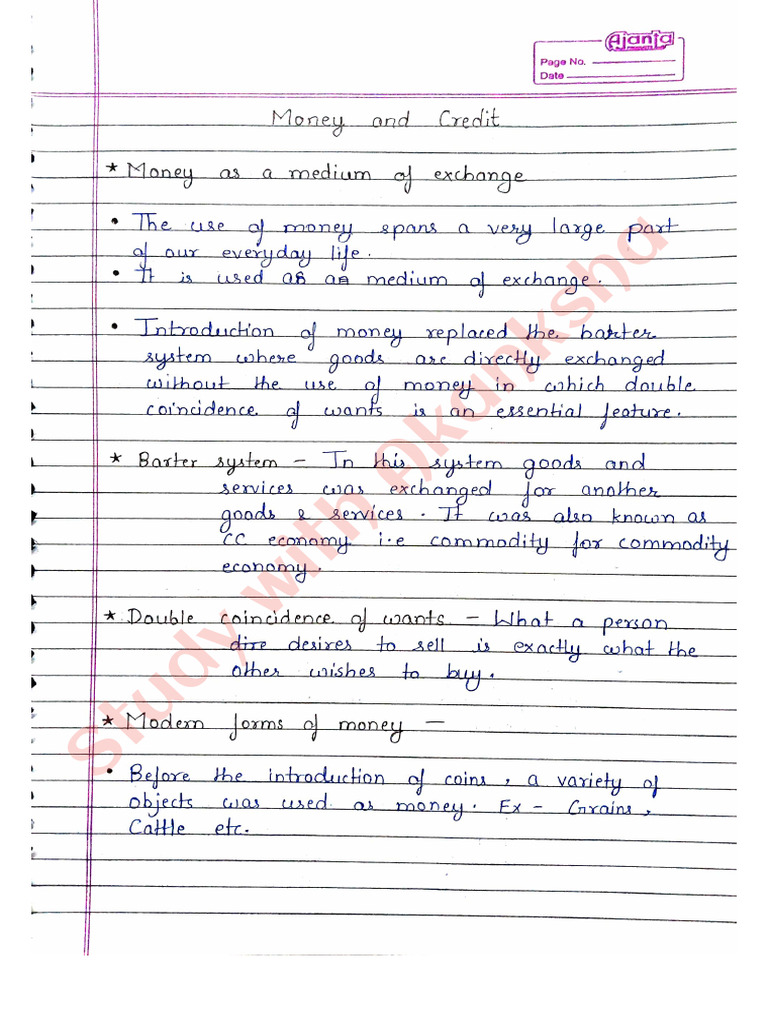 Ajanta
Page No.
Date
Money and Credit
* Money as a medium of exchange
• The use of money spans a very large part
of our everyday life.
• It is used as a medium of exchange.
• Introduction of money replaced the barter
system where goods are directly exchanged
without the use of money in which double
coincidence of wants is an essential feature.
* Barter system – In this system goods and
services was exchanged for another
goods & services. It was also known as
CC economy i.e commodity for commodity
economy.
* Double coincidence of wants – What a person
dire desires to sell is exactly what the
other wishes to buy.
* Modern forms of money –
• Before the introduction of coins, a variety of
objects was used as money. Ex – Grains,
Cattle etc.
Study with Akanksha